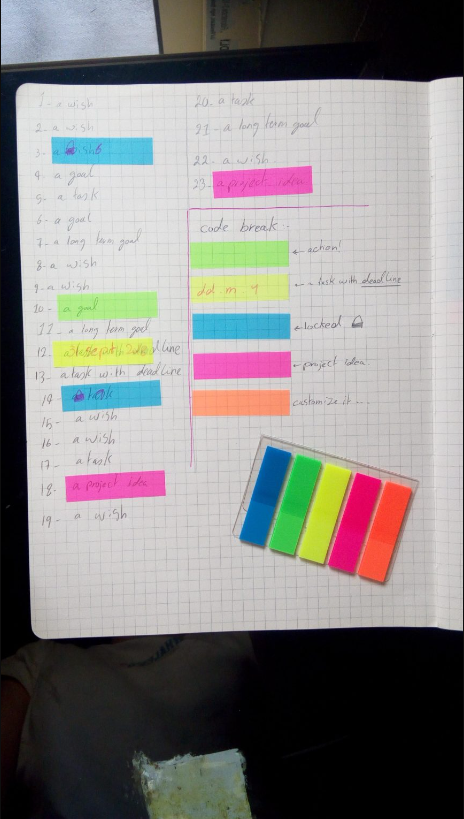 1- a wish
2- a wish
3- a wish
4- a goal
5- a task
6- a goal
7- a long term goal
8- a wish
9- a wish
10- a goal
11- a long term goal
12- deadline
13- a task with deadline
14- a task
15- a wish
16- a wish
17- a task
18- a project idea
19- a wish
20- a task
21- a long term goal
22- a wish
23- a project idea
code break:-
← action!
dd m y ← a task with deadline
← locked
← project idea
customize it...